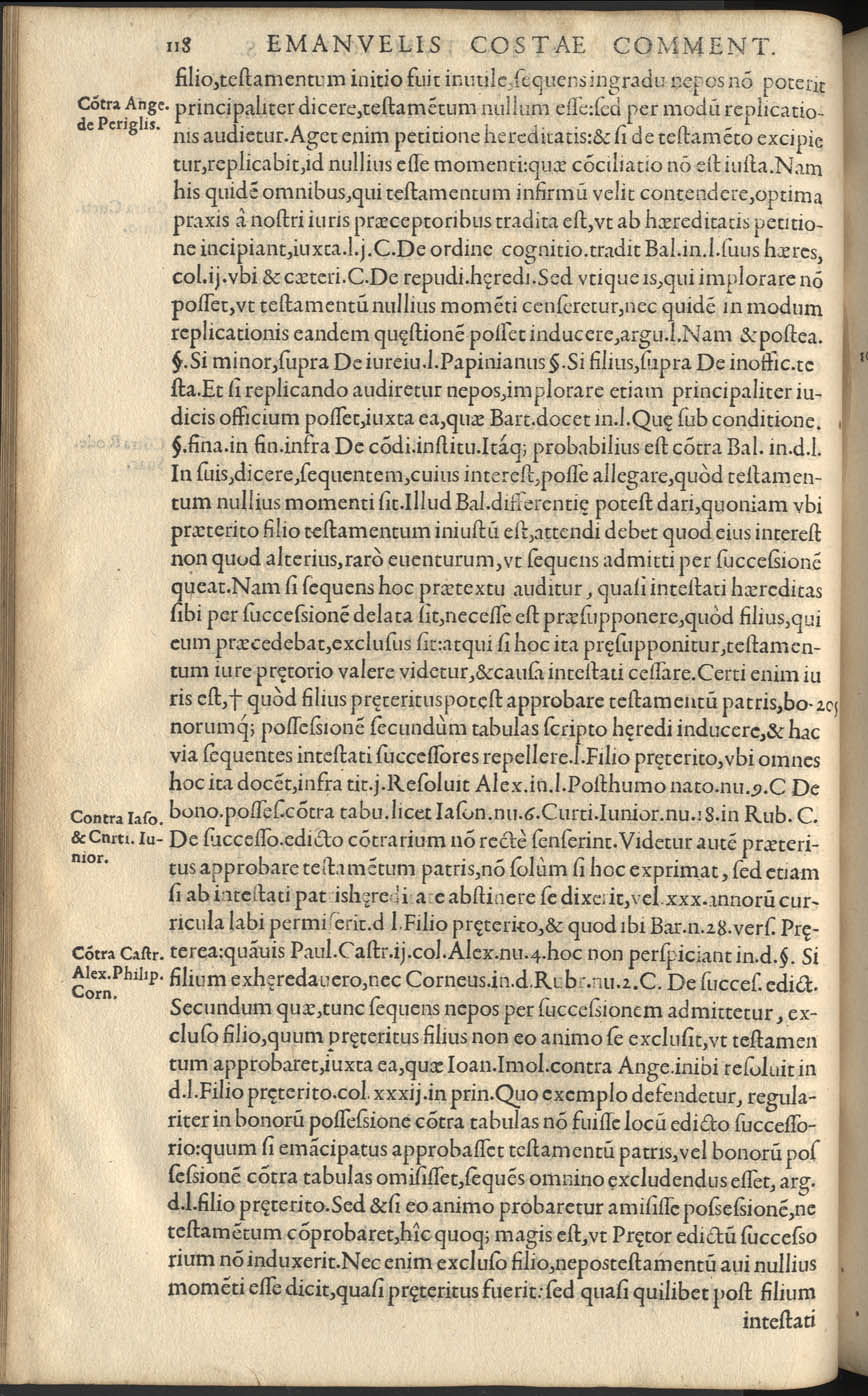 118 EMANVELIS COSTAE COMMENT.
filio,teſtamentum initio fuit inutile,ſequens in gradu nepos nõ poterit
Cõtra Ange.
de Periglis.
principaliter dicere,teſtamẽtum nullum eſſe:ſed per modũ replicatio-
nis audietur.Aget enim petitione hereditatis:& ſi de teſtamẽto excipie
tur,replicabit,id nullius eſſe momenti:quæ cõciliatio nõ eſt iuſta.Nam
his quidẽ omnibus,qui teſtamentum infirmũ velit contendere,optima
praxis â noſtri iuris præceptoribus tradita eſt,vt ab hæreditatis petitio-
ne incipiant,iuxta.l.j.C.De ordine cognitio.tradit Bal.in.l.ſuus hæres,
col.ij.vbi & cæteri.C.De repudi.hęredi.Sed vtique is,qui implorare nõ
poſſet,vt teſtamentũ nullius momẽti cenſeretur,nec quidẽ in modum
replicationis eandem quęſtionẽ poſſet inducere,argu.l.Nam & poſtea.
§.Si minor,ſupra De iureiu.l.Papinianus §.Si filius,ſupra De inoffic.te
ſta.Et ſi replicando audiretur nepos,implorare etiam principaliter iu-
dicis officium poſſet,iuxta ea,quæ Bart.docet in.l.Quę ſub conditione.
§.fina.in fin.infra De cõdi.inſtitu.Itáq; probabilius eſt cõtra Bal. in.d.l.
In ſuis,dicere,ſequentem,cuius intereſt,poſſe allegare,quòd teſtamen-
tum nullius momenti ſit.Illud Bal.differentię poteſt dari,quoniam vbi
præterito filio teſtamentum iniuſtũ eſt,attendi debet quod eius intereſt
non quod alterius,rarò euenturum,vt ſequens admitti per ſucceſsionẽ
queat.Nam ſi ſequens hoc prætextu auditur, quaſi inteſtati hæreditas
ſibi per ſucceſsionẽ delata ſit,neceſſe eſt præſupponere,quòd filius,qui
eum præcedebat,excluſus ſit:atqui ſi hoc ita pręſupponitur,teſtamen-
tum iure prętorio valere videtur,&cauſa inteſtati ceſſare.Certi enim iu
ris eſt,† quòd filius pręteritus poteſt approbare teſtamentũ patris,bo-
norumq́; poſſeſsionẽ ſecundùm tabulas ſcripto hęredi inducere,& hac
via ſequentes inteſtati ſucceſſores repellere.l.Filio pręterito,vbi omnes
hoc ita docẽt,infra tit.j.Reſoluit Alex.in.l.Poſthumo nato.nu.9.C De
Contra Iaſo.
& Curti. Iu-
nior.
bono.poſſeſ.cõtra tabu.licet Iaſon.nu.6.Curti.Iunior.nu.18.in Rub. C.
De ſucceſſo.edicto cõtrarium nõ rectè ſenſerint.Videtur autẽ præteri-
tus approbare teſtamẽtum patris,nõ ſolùm ſi hoc exprimat, ſed etiam
ſi ab inteſtati patris heredi ate abſtinere ſe dixerit,vel.xxx.annorũ cur-
ricula labi permiſerit.d l.Filio pręterito,& quod ibi Bar.n.28.verſ. Prę-
Cõtra Caſtr.
Alex.Philip.
Corn.
terea:quãuis Paul.Caſtr.ij.col.Alex.nu.4.hoc non perſpiciant in.d.§. Si
filium exhęredauero,nec Corneus.in.d.Rubr.nu.2.C. De ſucceſ. edict.
Secundum quæ,tunc ſequens nepos per ſucceſsionem admittetur, ex-
cluſo filio,quum pręteritus filius non eo animo ſe excluſit,vt teſtamen
tum approbaret,iuxta ea,quæ Ioan.Imol.contra Ange.inibi reſoluit in
d.l.Filio pręterito.col.xxxij.in prin.Quo exemplo defendetur, regula-
riter in bonorũ poſſeſsione cõtra tabulas nõ fuiſſe locũ edicto ſucceſſo-
rio:quum ſi emãcipatus approbaſſet teſtamentũ patris,vel bonorũ poſ
ſeſsionẽ cõtra tabulas omiſiſſet,ſequẽs omnino excludendus eſſet, arg.
d.l.filio pręterito.Sed &ſi eo animo probaretur amiſiſſe poſseſsionẽ,ne
teſtamẽtum cõprobaret,hîc quoq; magis eſt,vt Prętor edictũ ſucceſso
rium nõ induxerit.Nec enim excluſo filio,nepos teſtamentũ aui nullius
momẽti eſſe dicit,quaſi pręteritus fuerit: ſed quaſi quilibet poſt filium
inteſtati